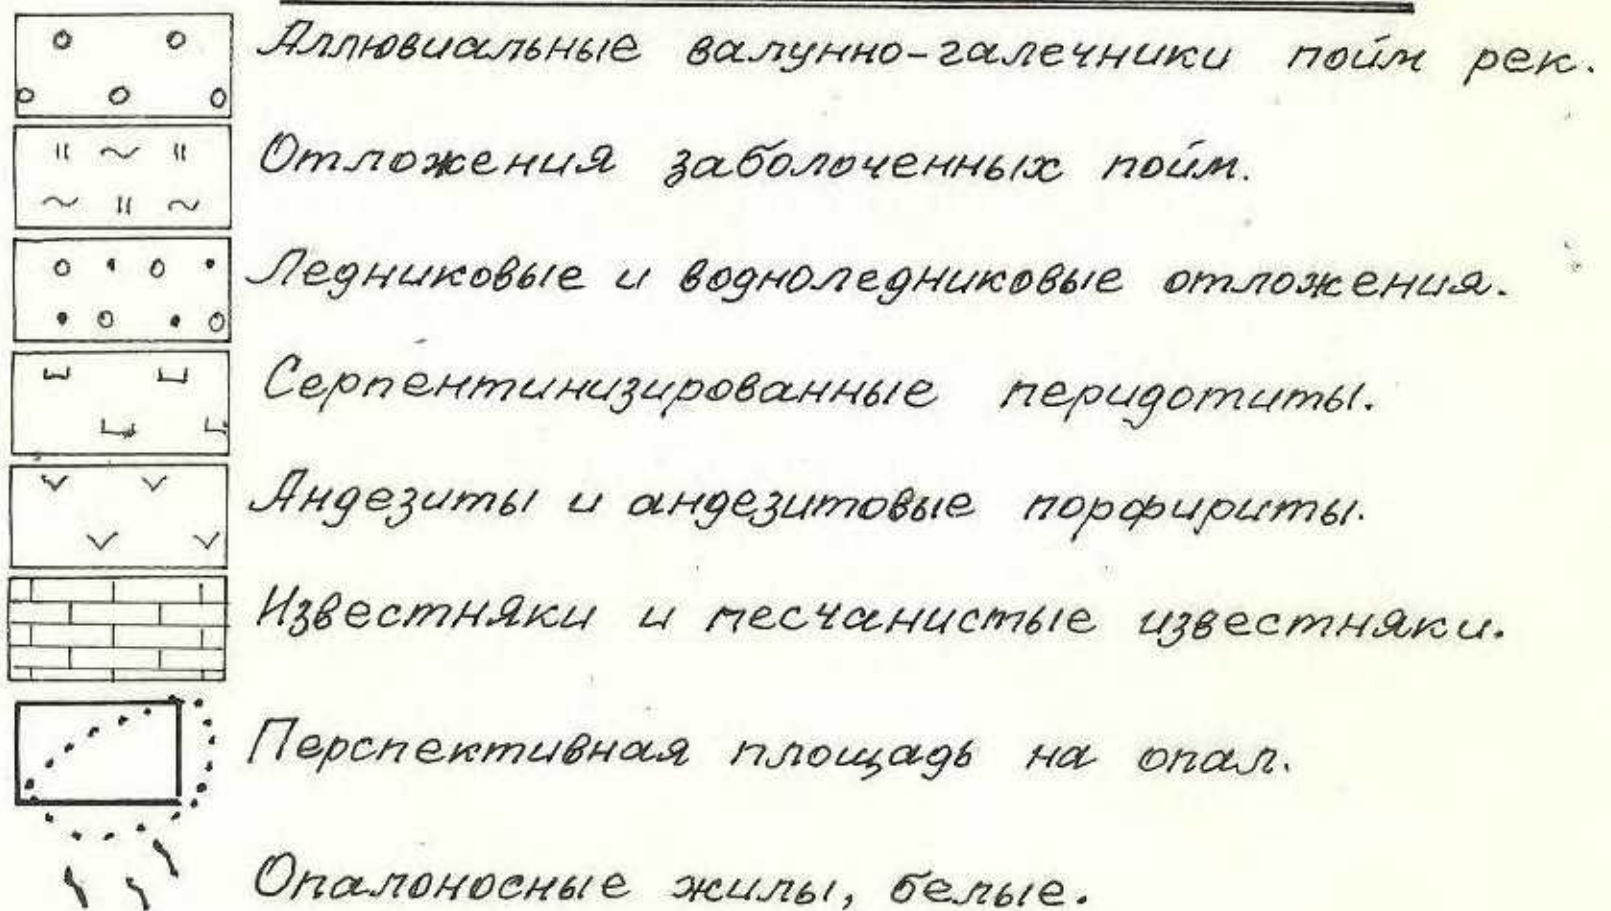 Аллювиальные валунно-галечники пойм рек.
Отложения заболоченных пойм.
Ледниковые и водноледниковые отложения.
Серпентинизированные перидотиты.
Андезиты и андезитовые порфириты.
Известняки и песчанистые известняки.
Перспективная площадь на опал.
Опалоносные жилы, белые.